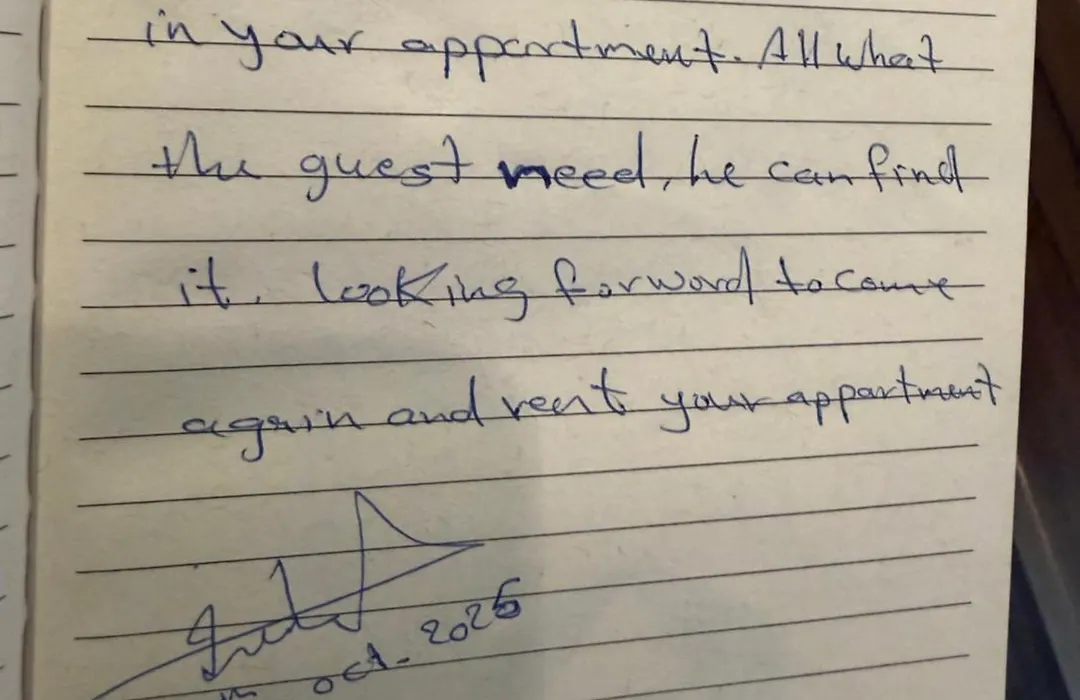 in your appartment. All what
the guest need, he can find
it. looking forward to come
again and rent your appartment
oct. 2025